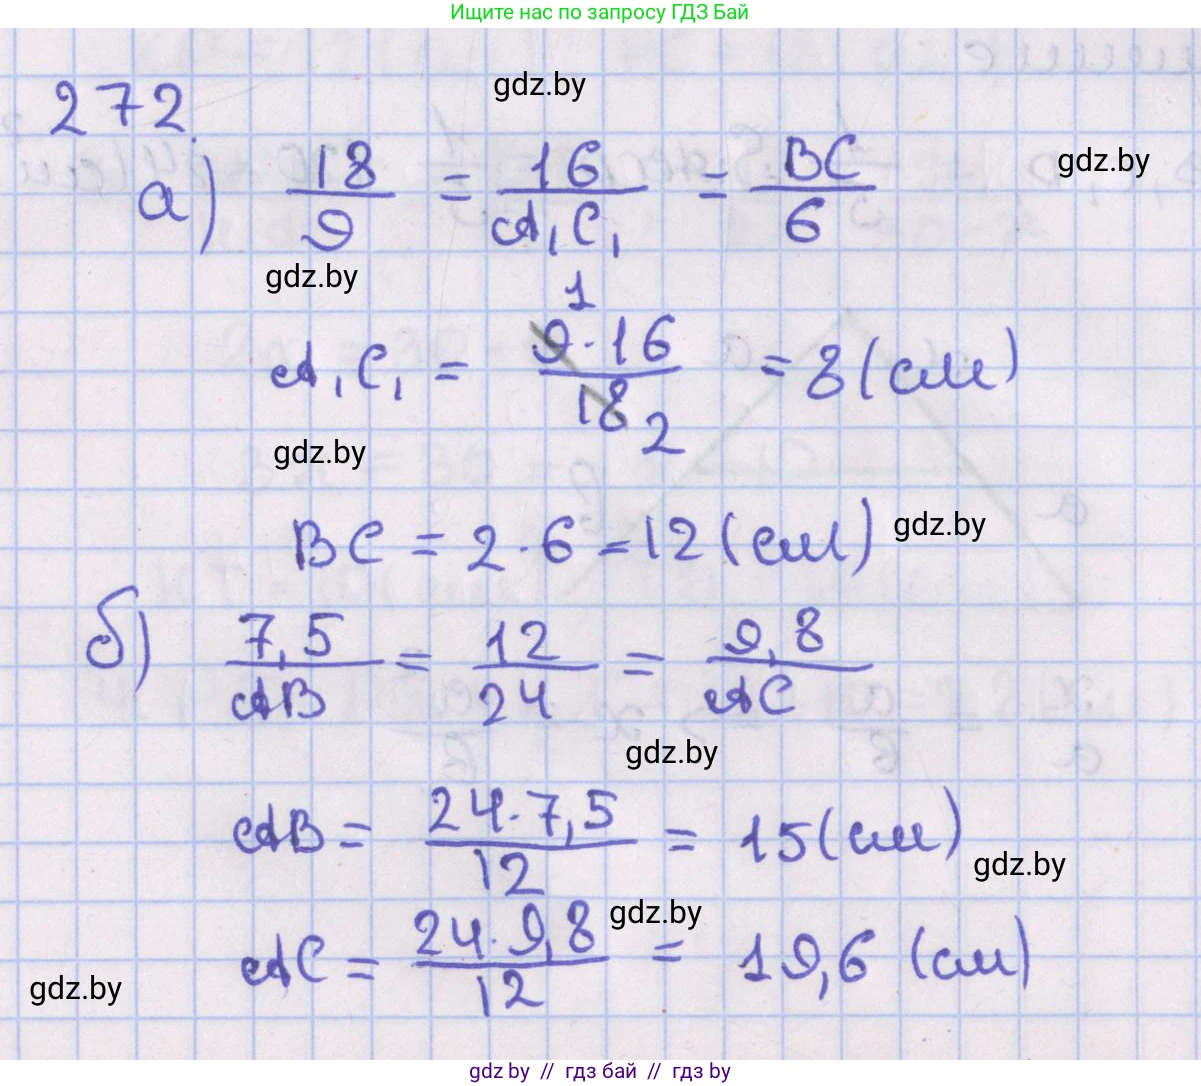 Ищите нас по запросу ГДЗ Бай
gdz.by
272.
gdz.by
а) 18/9 = 16/A₁C₁ = BC/6
gdz.by
A₁C₁ = 9·16/18 = 8 (см)
1
2
gdz.by
BC = 2·6 = 12 (см)
gdz.by
б) 7,5/AB = 12/24 = 9,8/AC
gdz.by
AB = 24·7,5/12 = 15 (см)
gdz.by
gdz.by
AC = 24·9,8/12 = 19,6 (см)
gdz.by
gdz by // гдз бай // гдз by